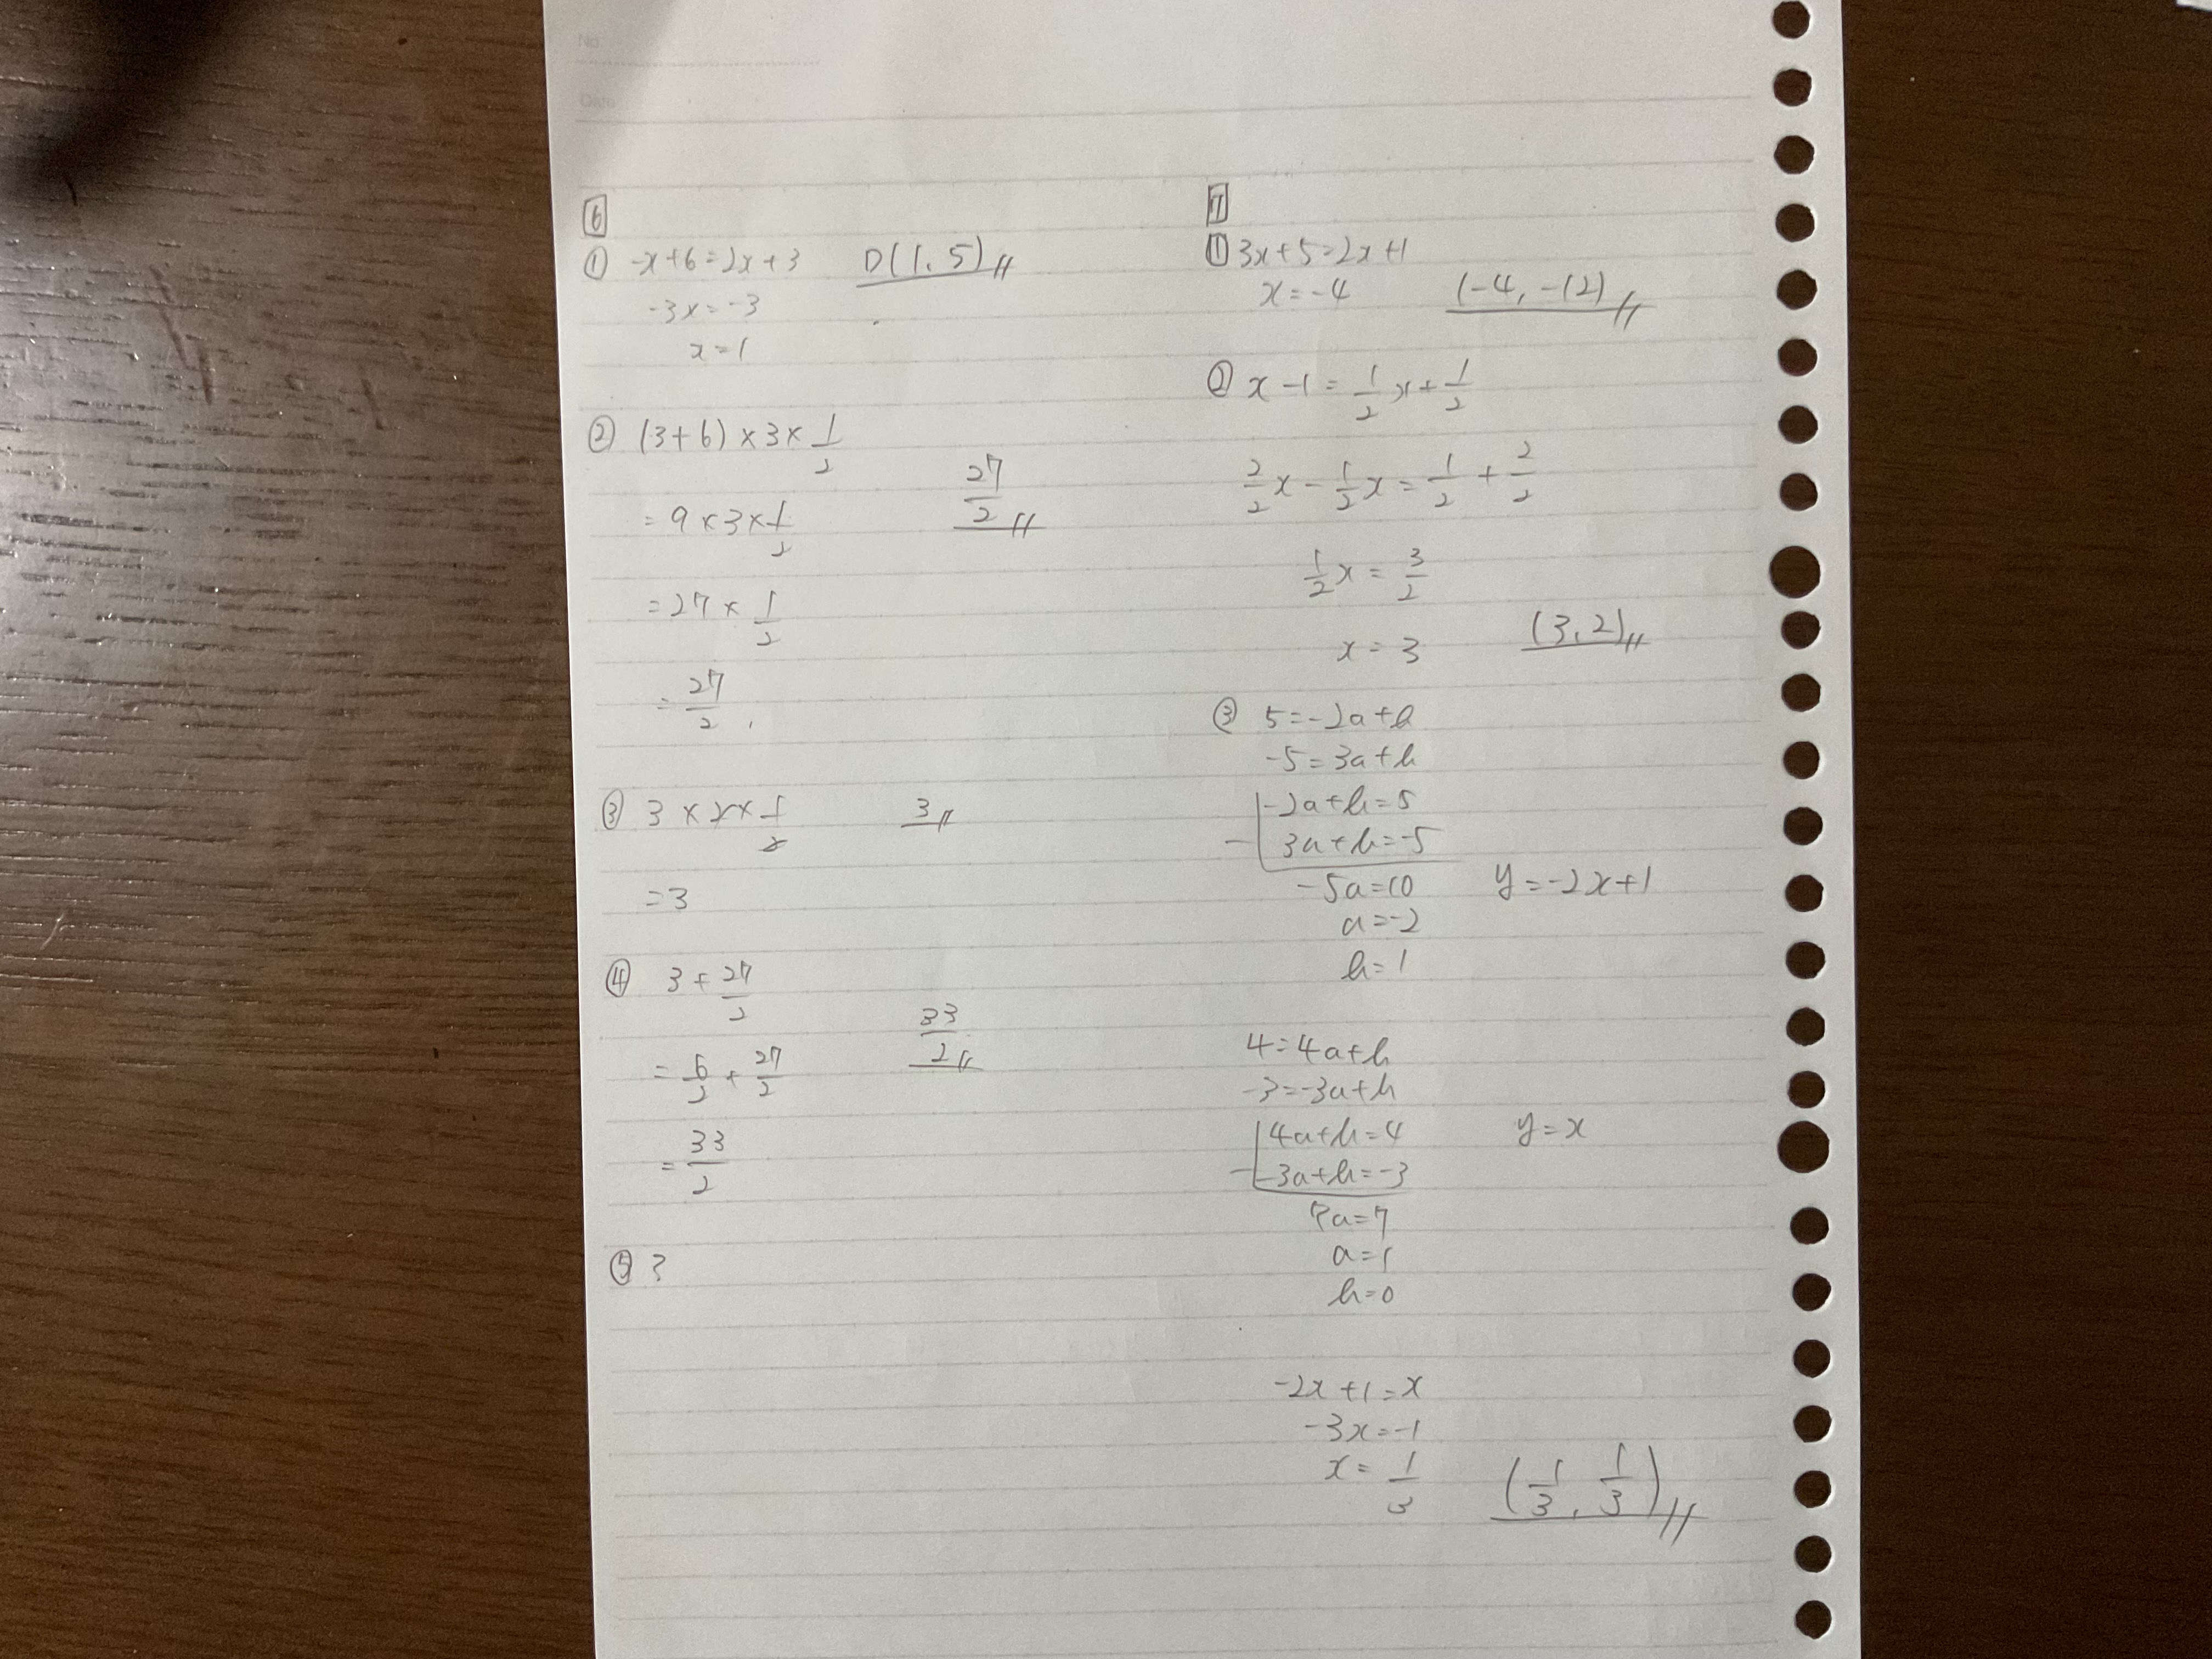 No.
Date
6
① -x+6=2x+3 D(1,5)
-3x=-3
x=1
② (3+6)×3×1/2
=9×3×1/2 27/2
=27×1/2
=27/2
③ 3×2×1/2 3
=3
④ 3+27/2
=6/2+27/2 33/2
=33/2
⑤ ?
7
① 3x+5=2x+1
x=-4 (-4,-12)
② x-1=1/2x+1/2
2/2x-1/2x=1/2+2/2
1/2x=3/2
x=3 (3,2)
③ 5=-2a+b
-5=3a+b
-2a+b=5
- 3a+b=-5
-5a=10 y=-2x+1
a=-2
b=1
4=4a+b
-3=-3a+b
4a+b=4 y=x
- -3a+b=-3
7a=7
a=1
b=0
-2x+1=x
-3x=-1
x=1/3 (1/3,1/3)